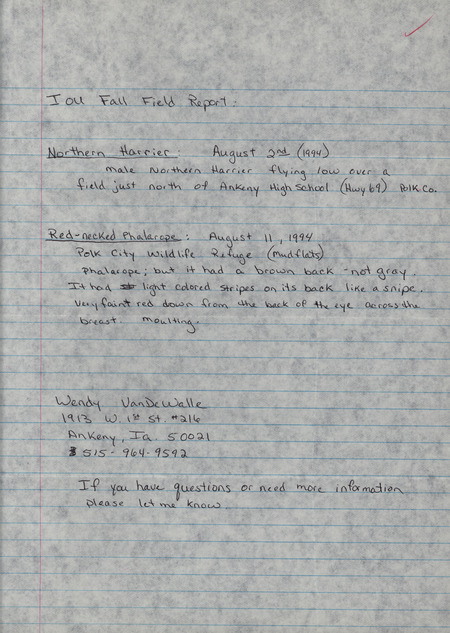 IOU Fall Field Report:
Northern Harrier: August 2nd (1994)
male Northern Harrier flying low over a
field just north of Ankeny High School (Hwy 69) Polk Co.
Red-necked Phalarope: August 11, 1994
Polk City Wildlife Refuge (mudflats)
Phalarope; but it had a brown back - not gray.
It had light colored stripes on its back like a snipe.
Very faint red down from the back of the eye across the
breast. moulting.
Wendy VanDeWalle
1913 W. 1st St. #216
Ankeny, Ia. 50021
515-964-9592
If you have questions or need more information
please let me know